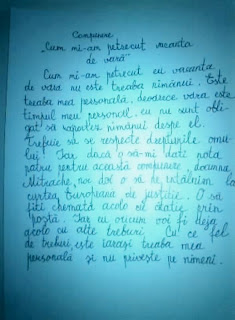 Compunere
„Cum mi-am petrecut vacanța
de vară"
Cum mi-am petrecut eu vacanța
de vară nu este treaba nimănui. Este
treaba mea personală, deoarece vara este
timpul meu personal, eu nu sunt obli-
gat să raportez nimănui despre el.
Trebuie să se respecte drepturile omu-
lui. Iar dacă o să-mi dați nota
patru pentru această compunere, doamna
Mitrache, noi doi o să ne întâlnim la
curtea europeană de justiție. O să
fiți chemată acolo cu citație prin
poștă. Iar eu oricum voi fi deja
acolo cu alte treburi. Cu ce fel
de treburi, este iarăși treaba mea
personală și nu privește pe nimeni.